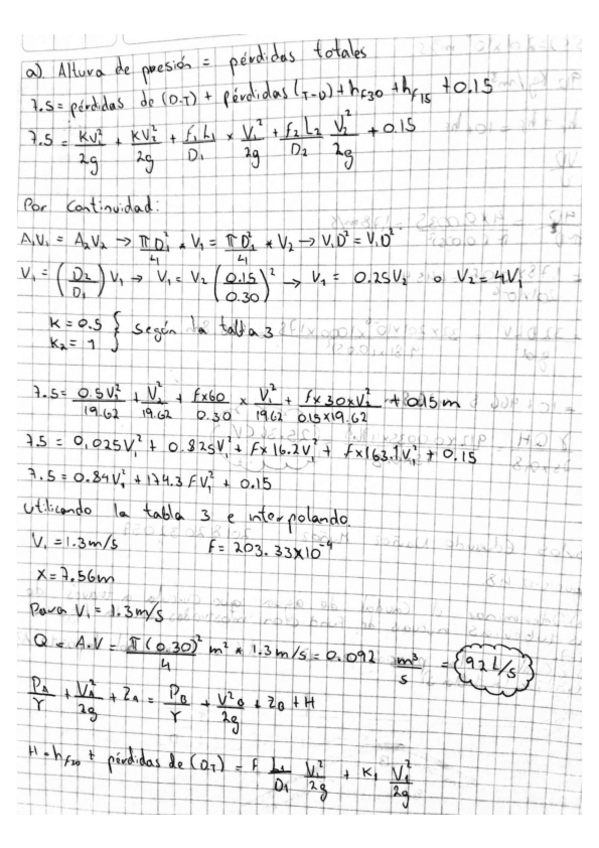 a) Altura de presión = pérdidas totales
7.5 = pérdidas de (D-T) + pérdidas (T-U) + hf30 + hf15 + 0.15
7.5 = KV₁²/2g + KV₂²/2g + f₁L₁/D₁ × V₁²/2g + f₂L₂/D₂ V₂²/2g + 0.15
Por continuidad:
A₁V₁ = A₂V₂ → πD₁²/4 * V₁ = πD₁²/4 * V₂ → V₁D² = V₁D²
V₁ = (D₂/D₁) V₁ → V₁ = V₂ (0.15/0.30)² → V₁ = 0.25V₂ o V₂ = 4V₁
K = 0.5
K₂ = 1 } según la tabla 3
7.5 = 0.5V₁²/19.62 + V₂²/19.62 + f×60/0.30 × V₁²/19.62 + f×30×V₂²/0.15×19.62 + 0.15 m
7.5 = 0,025V₁² + 0.825V₁² + F×16.2V₁² + F×163.1V₁² + 0.15
7.5 = 0.84V₁² + 174.3 FV₁² + 0.15
utilicando la tabla 3 e interpolando.
V₁ = 1.3 m/s F = 203.33×10⁻⁴
X = 7.56m
Para V₁ = 1.3 m/s
Q = A.V = π(0.30)²/4 m² * 1.3 m/s = 0.092 m³/s = 92 L/s
PA/γ + VA²/2g + ZA = PB/γ + V²B/2g + ZB + H
H = hf30 + pérdidas de (DT) = F L₁/D₁ V₁²/2g + K₁ V₁²/2g